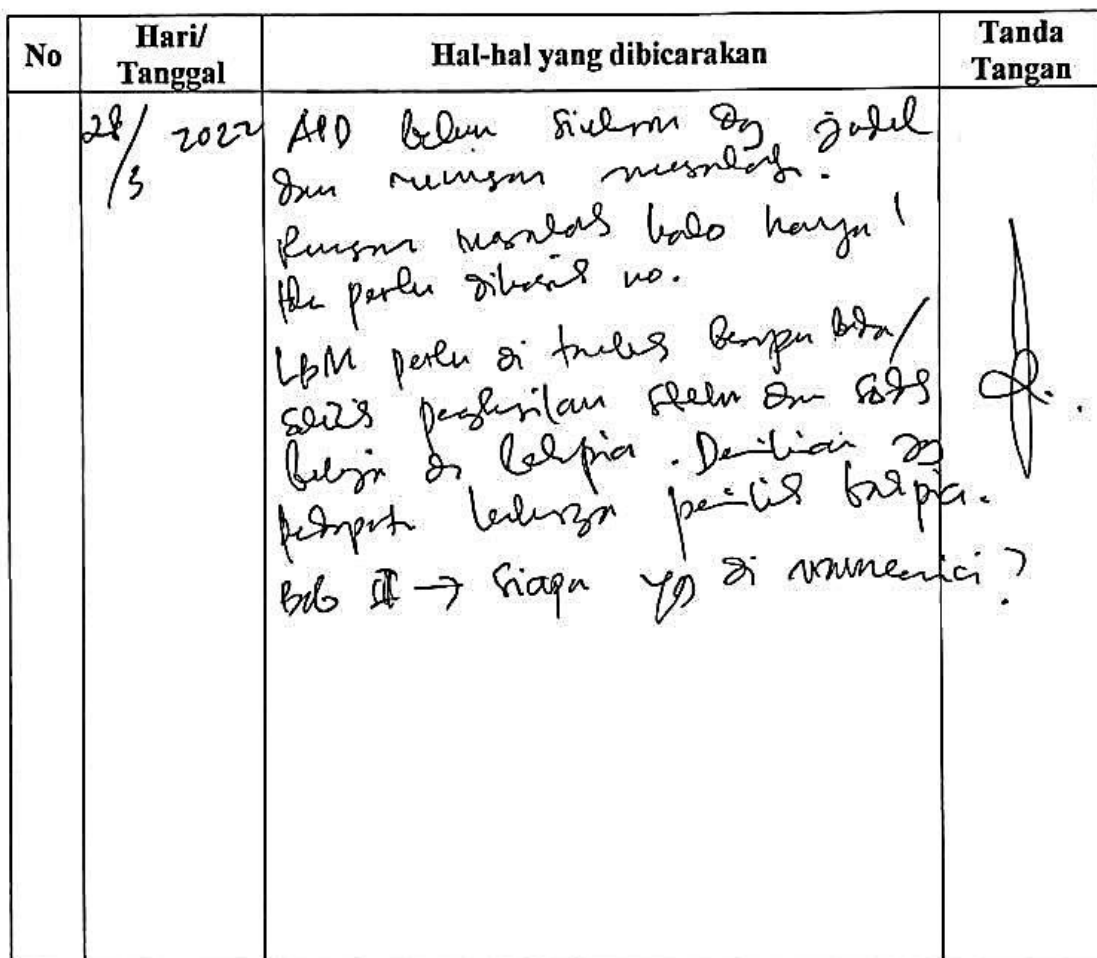 No Hari/ Tanggal Hal-hal yang dibicarakan Tanda Tangan
28/3 2022 APD belum sinkron dg judul
dan rumusan masalah.
Rumusan masalah kalo hanya 1
perlu no.
LBM perlu di tulis berapa beda/
selisih penghasilan sblm dan
bekerja di bakpia. Demikian dg
pendapatan keluarga pemilik bakpia.
Bab III → Siapa yg di wawancarai?